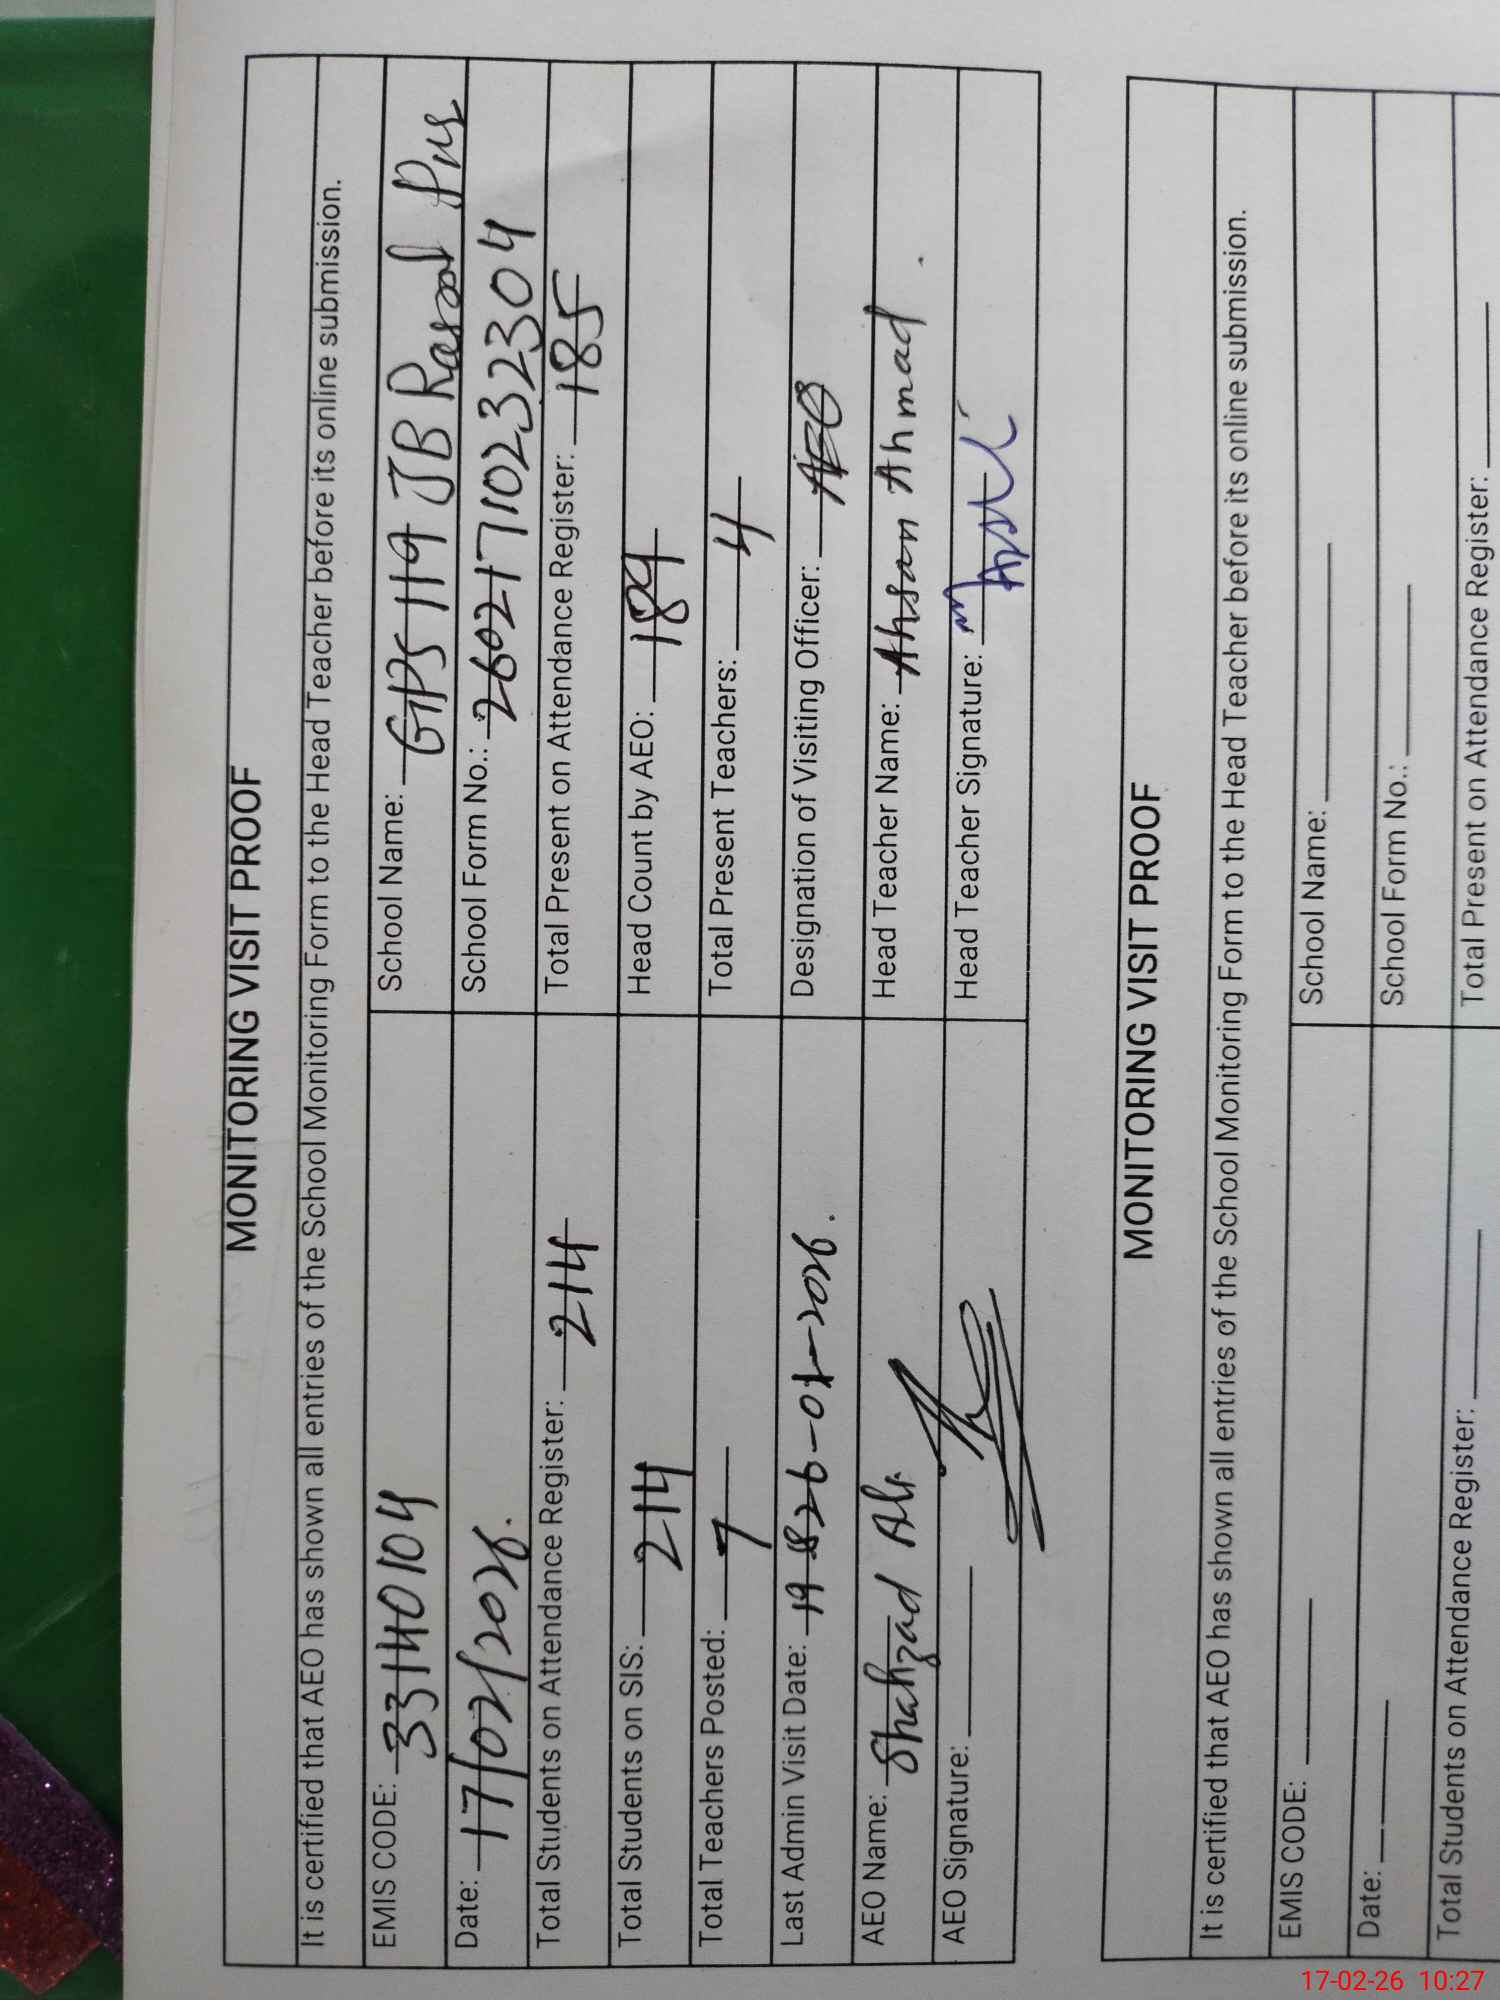 MONITORING VISIT PROOF
It is certified that AEO has shown all entries of the School Monitoring Form to the Head Teacher before its online submission.
EMIS CODE: 33140104 School Name: GPS 119 JB Rasool Pur
Date: 17/02/2026. School Form No.: 26021710232304
Total Students on Attendance Register: 214 Total Present on Attendance Register: 185
Total Students on SIS: 214 Head Count by AEO: 184
Total Teachers Posted: 7 Total Present Teachers: 4
Last Admin Visit Date: -2026. Designation of Visiting Officer: AEO
AEO Name: Shahzad Ali. Head Teacher Name: Ahsan Ahmad.
AEO Signature: Head Teacher Signature:
MONITORING VISIT PROOF
It is certified that AEO has shown all entries of the School Monitoring Form to the Head Teacher before its online submission.
EMIS CODE: School Name:
Date: School Form No.:
Total Students on Attendance Register: Total Present on Attendance Register:
17-02-26 10:27